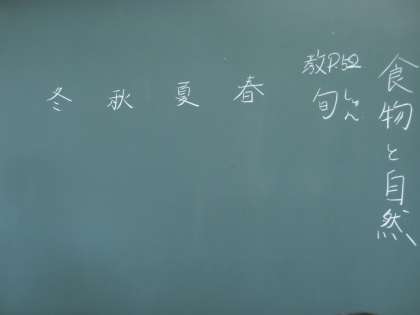 食物と自然
教P.52
旬
しゅん
春
夏
秋
冬